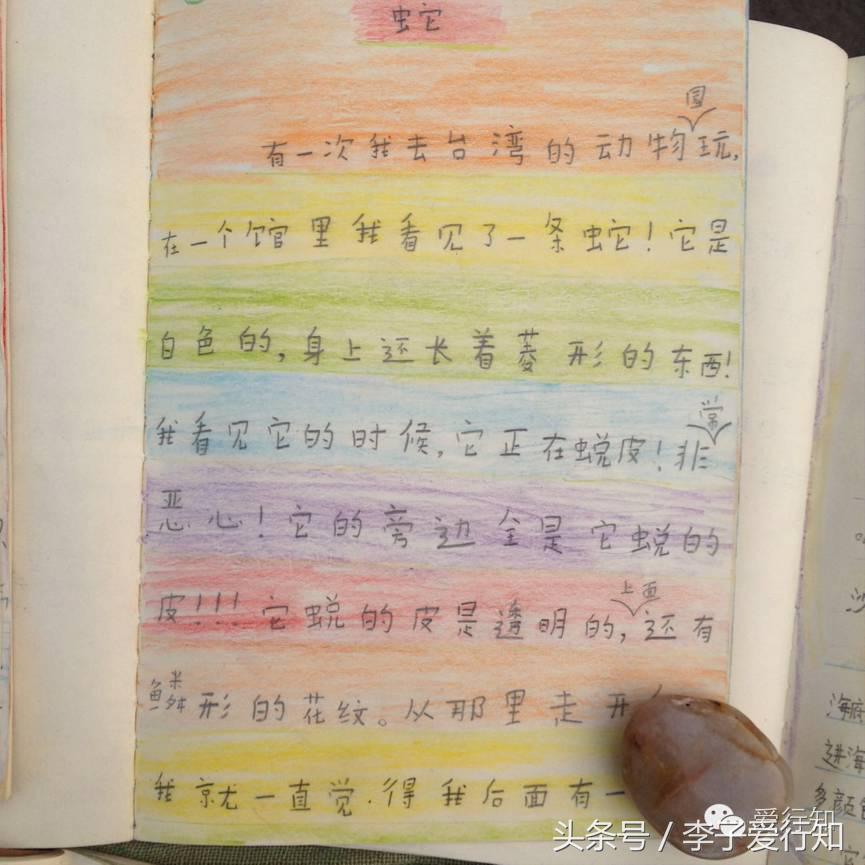 蛇
有一次我去台湾的动物园玩,
在一个馆里我看见了一条蛇！它是
白色的,身上还长着菱形的东西！
我看见它的时候,它正在蜕皮！非常
恶心！它的旁边全是它蜕的
皮！！！它蜕的皮是透明的,上面还有
鳞形的花纹。从那里走开
我就一直觉得我后面有一
海底
进海
多颜色
爱行知
头条号 / 李子爱行知